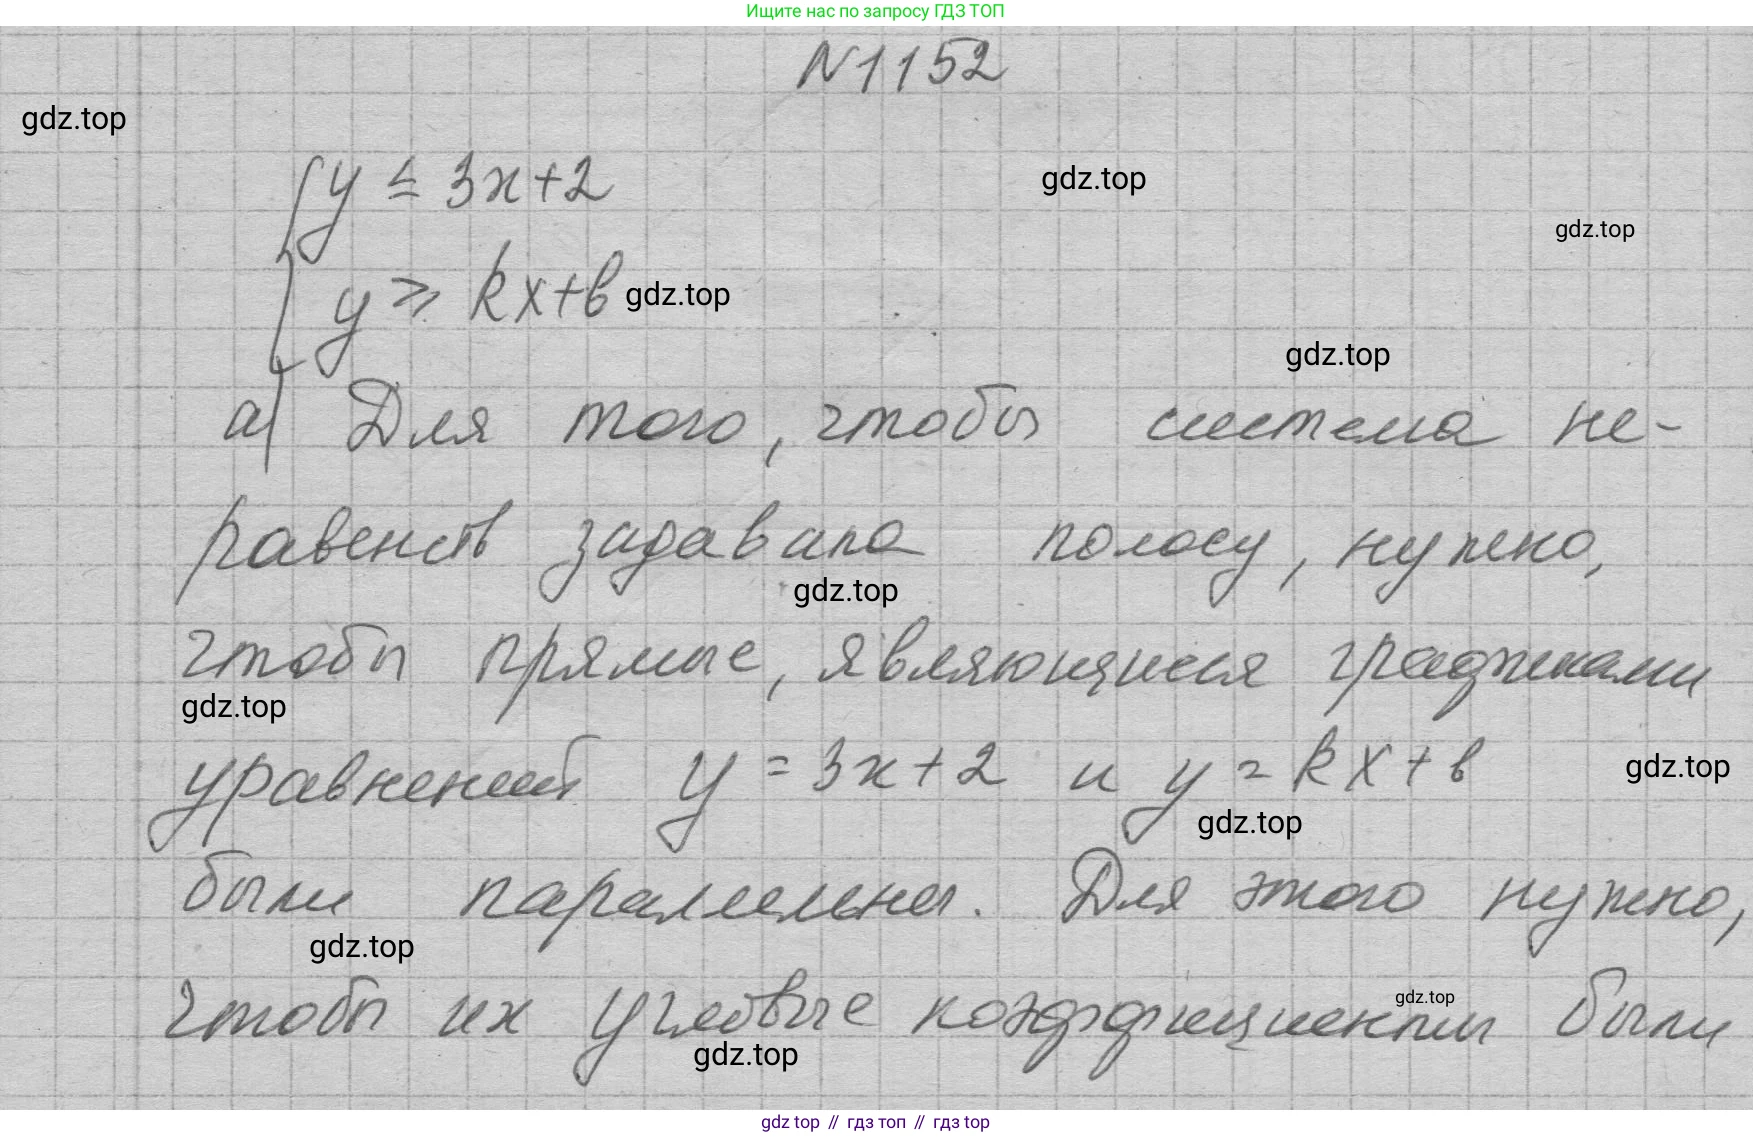 Ищите нас по запросу ГДЗ ТОП
N1152
gdz.top
y ≤ 3x+2
gdz.top
gdz.top
y ⩾ kx+b
gdz.top
gdz.top
а) Для того, чтобы система не-
равенств задавала полосу, нужно,
gdz.top
чтобы прямые, являющиеся графиками
gdz.top
уравнений y = 3x+2 и y = kx+b
gdz.top
gdz.top
были параллельны. Для этого нужно,
gdz.top
чтобы их угловые коэффициенты были
gdz.top
gdz.top
gdz top // гдз топ // гдз top